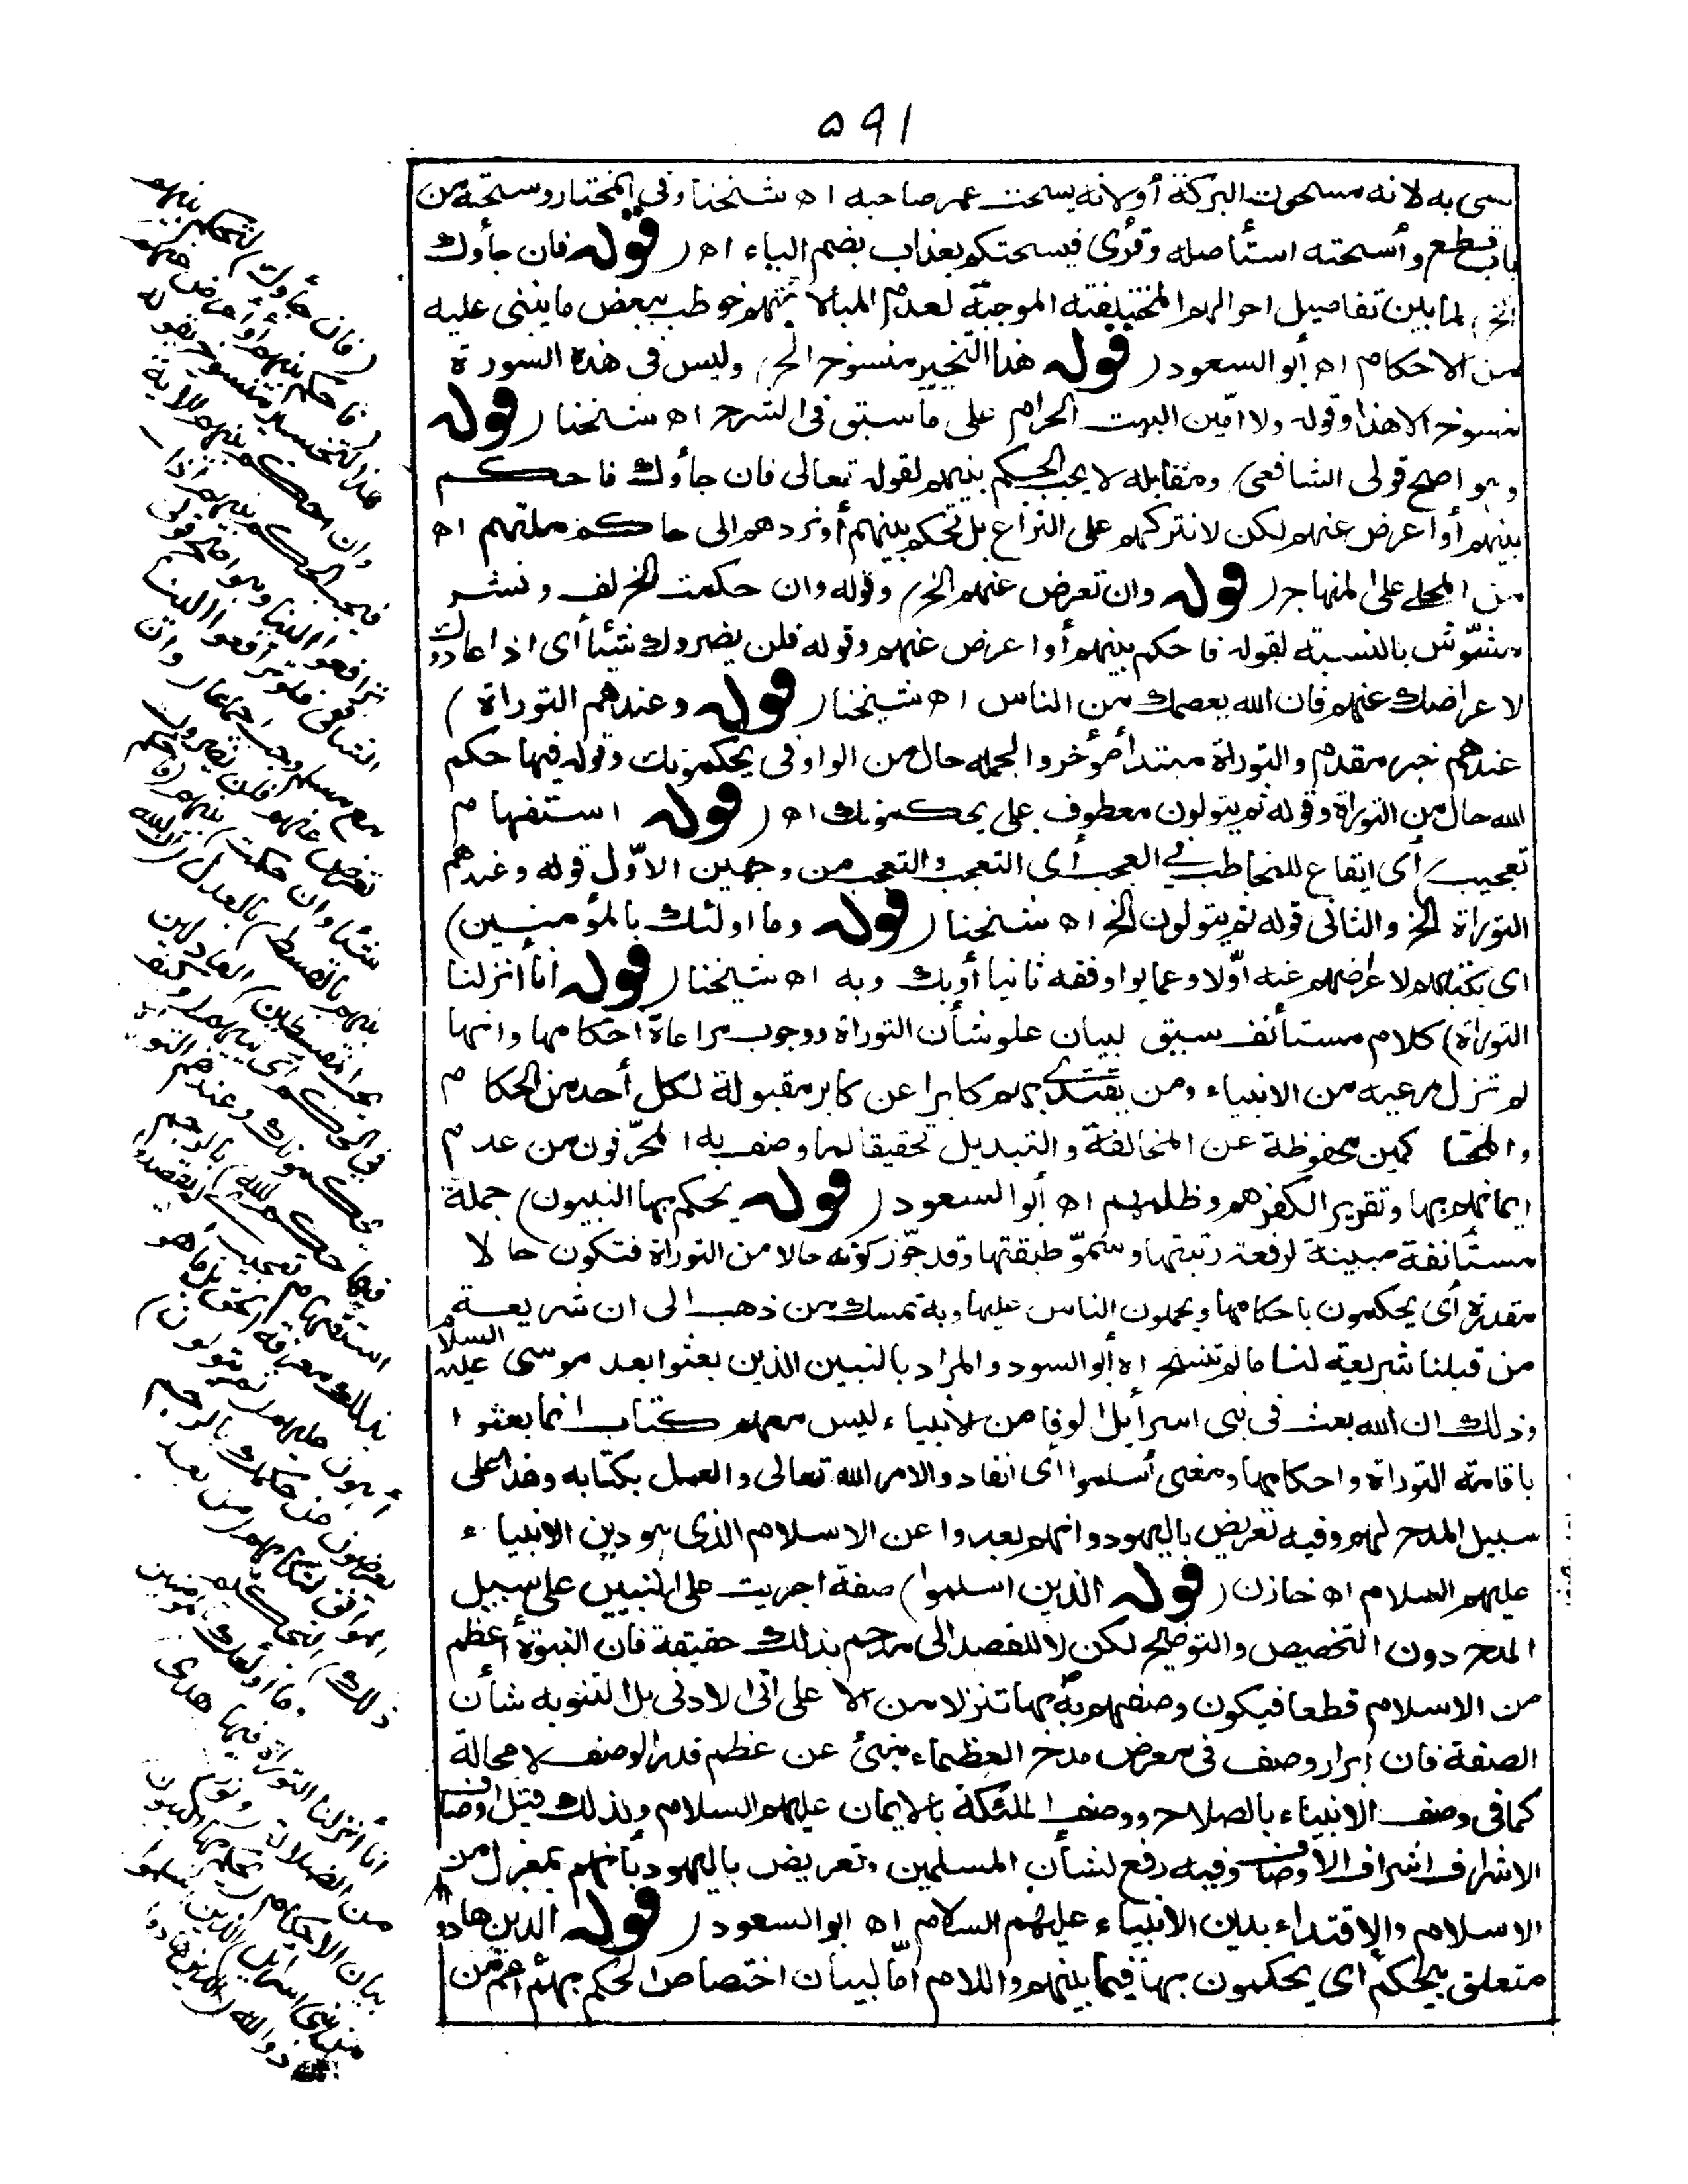 ٥٩١
سمى به لانه مسحوت البركة أولانه يسحت عمر صاحبه اه شيخنا وفى المختار وسحته من
باب قطع وأسحته استأصله وقرئ فيسحتكم بعذاب بضم الياء اه ( قوله فان جأوك
الخ) لما بين تفاصيل احوالهم المختلفة الموجبة لعدم المبالاة بهم خوطب ببعض ما يبنى عليه
من الاحكام اه أبو السعود ( قوله هذا التخيير منسوخ الخ) وليس فى هذه السورة
منسوخ الا هذا وقوله ولا آمّين البيت الحرام على ما سبق فى الشرح اه شيخنا ( قوله
وهو اصح قولى الشافعى) ومقابله لا يجب الحكم بينهم لقوله تعالى فان جأوك فاحكم
بينهم أو اعرض عنهم لكن لا نتركهم على النزاع بل نحكم بينهم أو نردهم الى حاكم ملتهم اه
من المحلى على المنهاج ( قوله وان تعرض عنهم الخ) وقوله وان حكمت الخ لف ونشر
مشوّش بالنسبة لقوله فاحكم بينهم أو اعرض عنهم وقوله فلن يضروك شيئا أى اذا عادوك
لاعراضك عنهم فان الله يعصمك من الناس اه شيخنا ( قوله وعندهم التوراة )
عندهم خبر مقدم والتوراة مبتدأ مؤخر والجمله حال من الواو فى يحكمونك وقوله فيها حكم
الله حال من التوراة وقوله ثم يتولون معطوف على يحكمونك اه ( قوله استفهام
تعجيب) أى ايقاع للمخاطب فى العجب أى التعجب والتعجب من وجهين الاوّل قوله وعندهم
التوراة الخ والثانى قوله ثم يتولون الخ اه شيخنا ( قوله وما اولئك بالمؤمنين)
اى بكتابهم لاعراضهم عنه أوّلا وعما يوافقه ثانيا أوبك وبه اه شيخنا ( قوله انا أنزلنا
التوراة) كلام مستأنف سيق لبيان علو شأن التوراة ووجوب مراعاة احكامها وانها
لم تزل مرعيه من الانبياء ومن يقتدى بهم كابرا عن كابر مقبولة لكل أحد من الحكام
والمتحا كمين محفوظة عن المخالفة والتبديل تحقيقا لما وصف به المحرّفون من عدم
ايمانهم بها وتقرير الكفرهم وظلمهم اه أبو السعود ( قوله يحكم بها النبيون) جملة
مستأنفة مبينة لرفعة رتبتها وسموّ طبقتها وقد جوّز كونه حالا من التوراة فتكون حالا
مقدرة أى يحكمون باحكامها ويحملون الناس عليها وبه تمسك من ذهب الى ان شريعة
من قبلنا شريعة لنا ما لم تنسخ اه أبو السود والمراد بالنبين الذين بعثوا بعد موسى عليه السلام
وذلك ان الله بعث فى بنى اسرأيل الوفا من الانبياء ليس معهم كتاب انما بعثوا
باقامة التوراة واحكامها ومعنى أسلموا أى انقادوا لامر الله تعالى والعمل بكتابه وهذا على
سبيل المدح لهم وفيه تعريض باليهود وانهم بعدوا عن الاسلام الذى هو دين الانبياء
عليهم السلام اه خازن ( قوله الذين اسلموا) صفة اجريت على النبيين على سبيل
المدح دون التخصيص والتوضيح لكن لا للقصد الى مدحهم بذلك حقيقة فان النبوة أعظم
من الاسلام قطعا فيكون وصفهم به بها تنزلا من الا على الى الادنى بل التنويه شأن
الصفة فان ابراز وصف فى معرض مدح العظماء منبئ عن عظم قدر الوصف لا محالة
كما فى وصف الانبياء بالصلاح ووصف الملئكة بالايمان عليهم السلام ولذلك قيل اوصاف
الاشراف اشراف الاوصاف وفيه رفع لشأن المسلمين وتعريض باليهود بأنهم بمعزل من
الاسلام والاقتداء بدين الانبياء عليهم السلام اه ابو السعود ( قوله الذين هادوا
متعلق بيحكم أى يحكمون بها فيما بينهم واللام أمّا لبيان اختصاص الحكم بهم أعم من
(فان جأوك) لتحكم بينهم
(فاحكم بينهم أو أعرض عنهم
هذا لتخيير منسوخ بقوله
وان احكم بينهم الاية
فيجب الحكم بينهم اذا
ترافعوا الينا وهو اصح قولى
الشافعى فلو ترافعوا الينا
مع مسلم وجب اجماعا (وان
تعرض عنهم فلن يضروك
شئا وان حكمت) بينهم (فاحكم
بينهم بالقسط) بالعدل (ان الله
يحب المقسطين) العادلين
فى الحكم أى يثيبهم (وكيف
يحكمونك وعندهم التوراة
فيها حكم الله) بالرجم
استفهام تعجيب أى لم يقصدوا
بذلك معرفة الحق بل ما هو
أهون عليهم (ثم يتولون)
يعرضون عن حكمك بالرجم
الموافق لكتابهم (من بعد
ذلك) التحكيم
وما أولئك بالمؤمنين
انا أنزلنا التوراة فيها هدى
من الضلالة ونور
بيان الاحكام يحكم بها النبيون
من بنى اسرايل الذين أسلموا